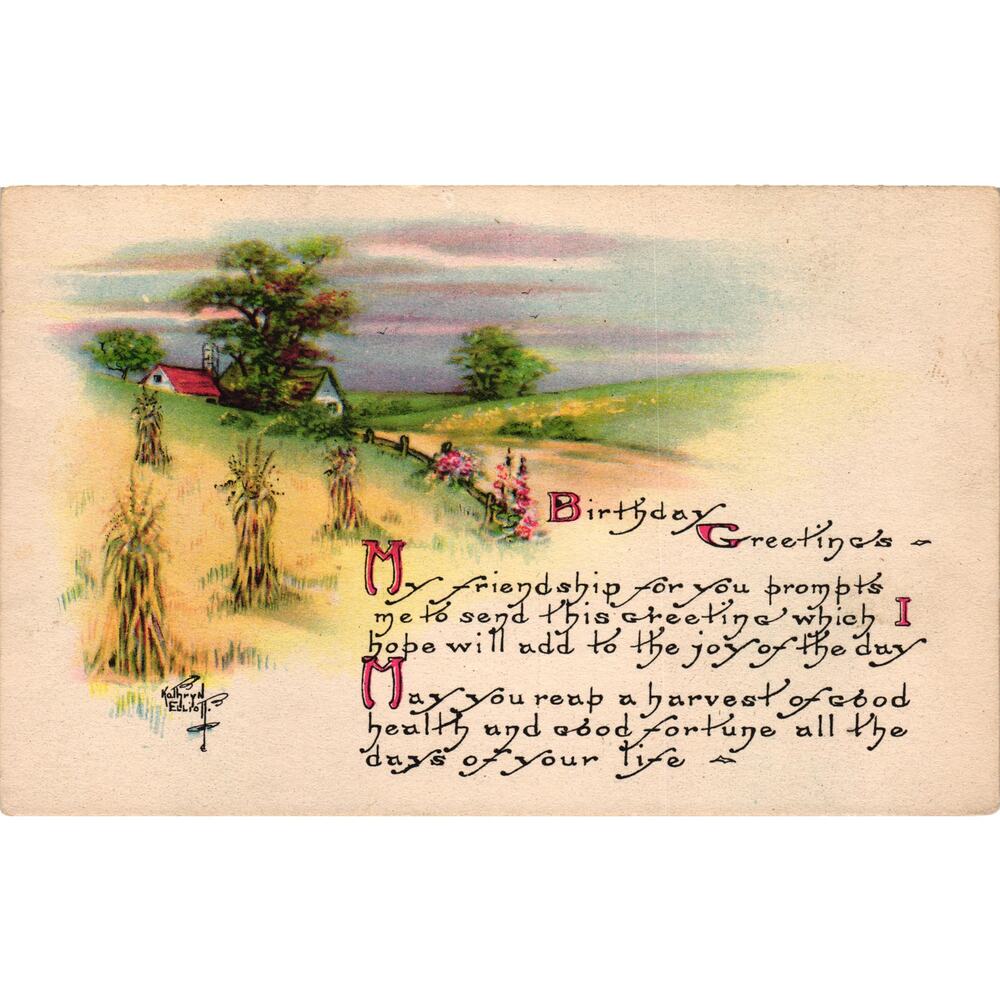 Birthday
Greetings
My friendship for you prompts
me to send this Greeting which I
hope will add to the joy of the day
May you reap a harvest of Good
health and Good fortune all the
days of your life
Kathryn
Elliott.